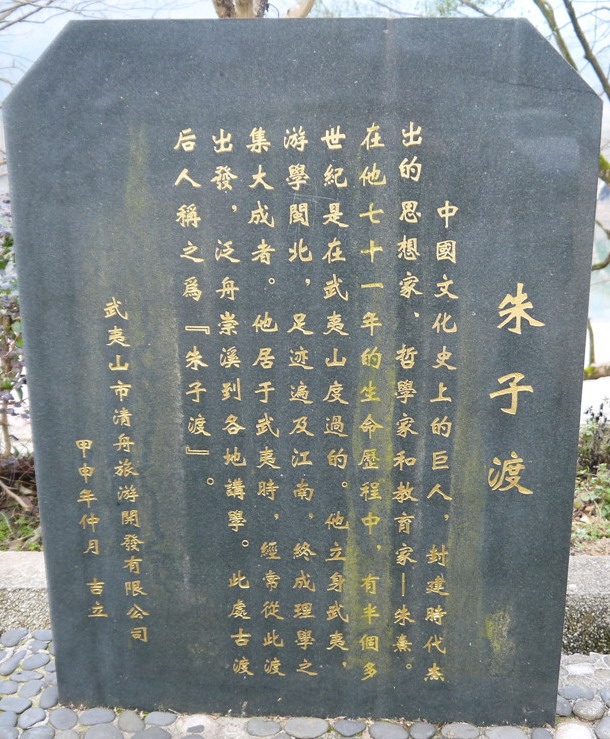 朱子渡
中國文化史上的巨人，封建時代杰
出的思想家、哲學家和教育家—朱熹。
在他七十一年的生命歷程中，有半個多
世紀是在武夷山度過的。他立身武夷，
游學閩北，足迹遍及江南，終成理學之
集大成者。他居于武夷時，經常從此渡
出發，泛舟崇溪到各地講學。此處古渡
后人稱之爲『朱子渡』。
武夷山市清舟旅游開發有限公司
甲申年仲月 吉立